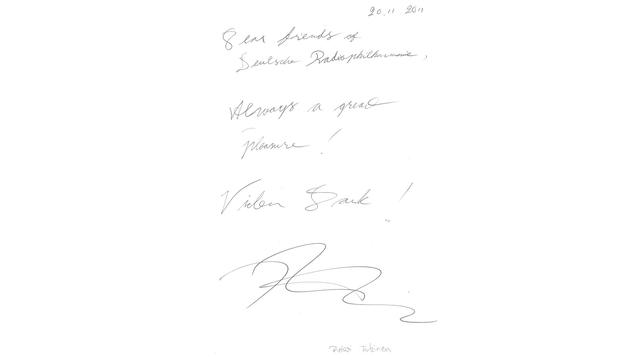 20.11.2011
Dear friends of
Deutsche Radiophilharmonie,
Always a great
pleasure!
Vielen Dank!